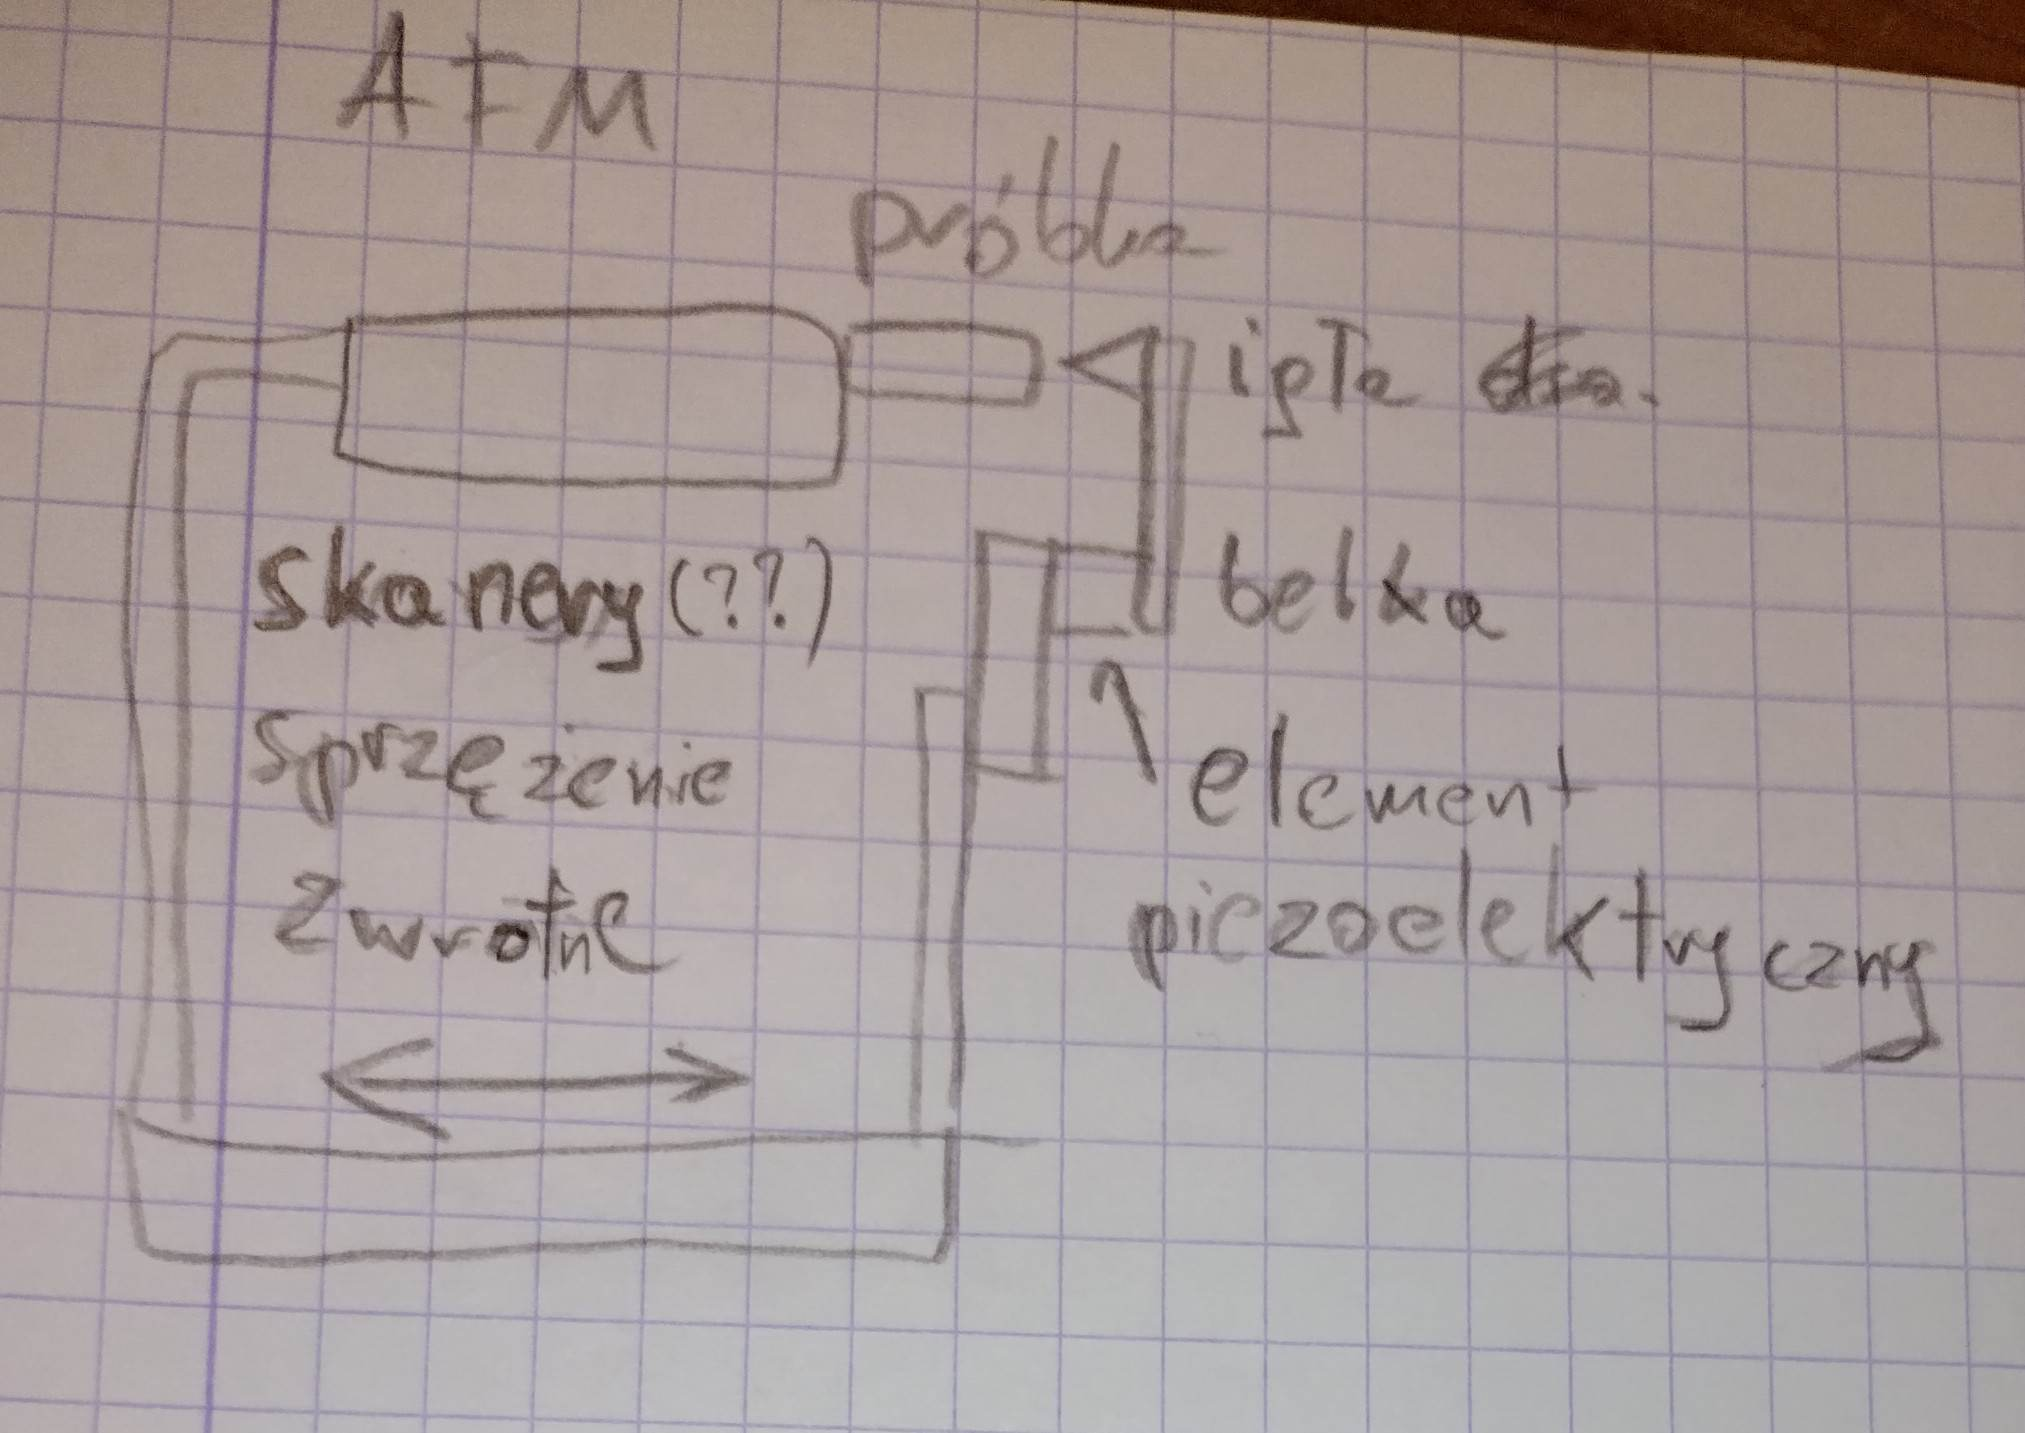 AFM
próbka
igła
skanery (??)
belka
sprzężenie
zwrotne
element
piezoelektryczny